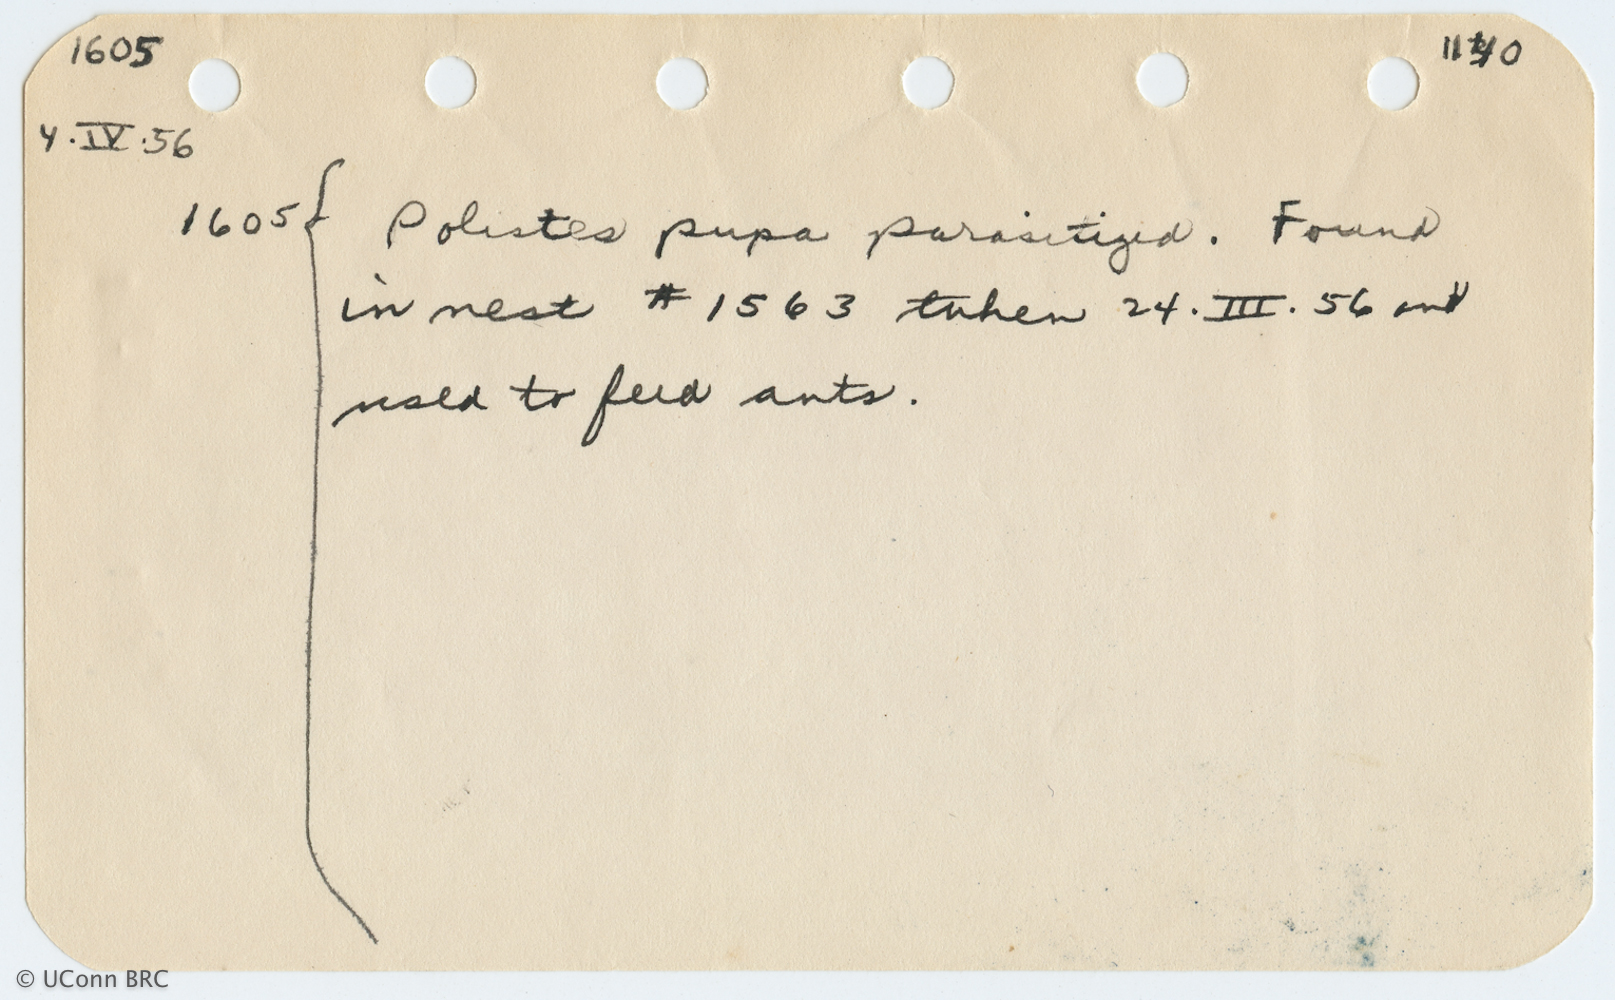 1605
4.IV.56
1605 { Polistes pupa parasitized. Found
in nest #1563 taken 24.III.56 and
used to feed ants.
© UConn BRC